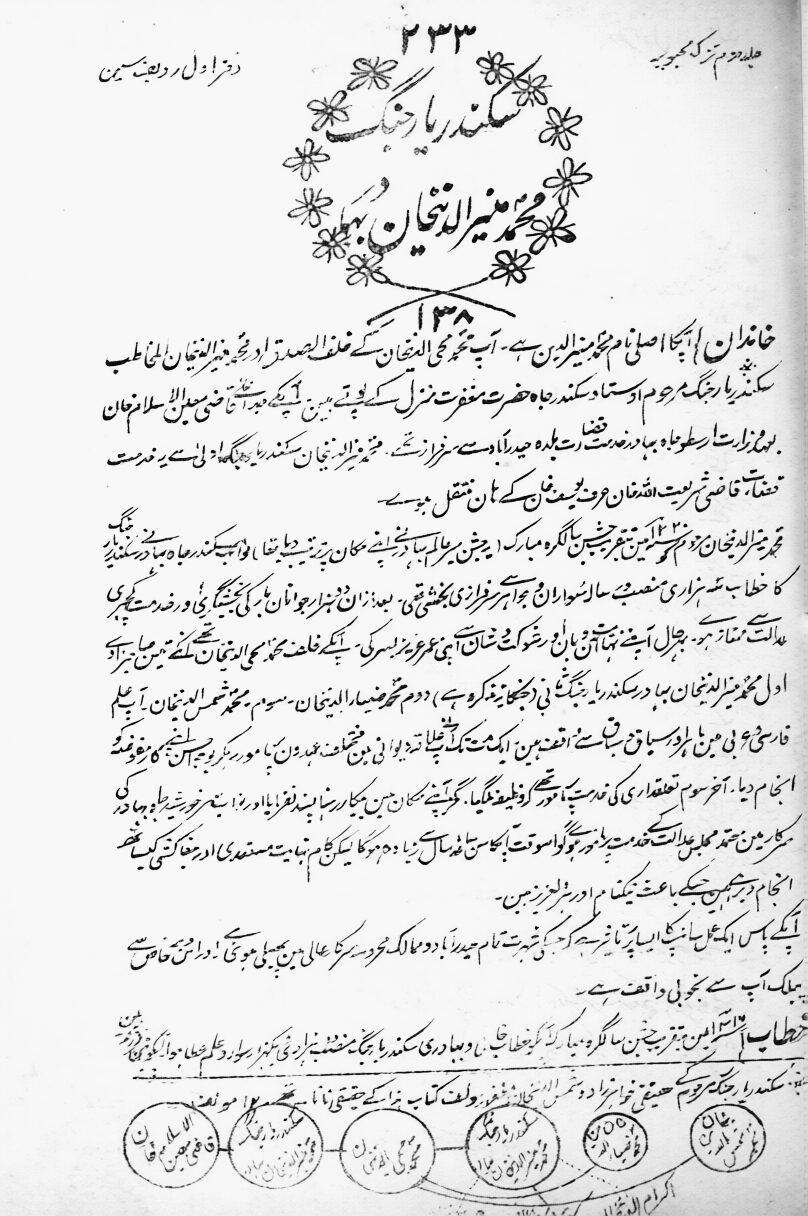 ۲۳۳
جلد دوم تزک محبوبیہ
دفتر اول ردیف سین
سکندر یار جنگ
محمد منیر الدینخان بہادر
۱۳۸
خاندان آپکا اصلی نام محمد منیر الدین ہے۔ آپ محمد محی الدینخان کے خلف الصدق اور محمد منیر الدینخان المخاطب
سکندر یار جنگ مرحوم اوستاد سکندر جاہ حضرت مغفرت منزل کے پوتے ہین آپکے قاضی معین الاسلام خان
بعہد وزارت ارسطو جاہ بہادر خدمت قضارت بلدہ حیدرآباد سے سرفراز تھے۔ محمد منیر الدینخان سکندر یار جنگ اولیٰ سے یہ خدمت
قضات قاضی شریعت اللہ خان عرف یوسف خان کے ہان منتقل ہوے۔
محمد منیر الدینخان مرحوم کو ۱۲۲۰ مین بتقریب جشن سالگرہ مبارک (یہ جشن میر عالم بہادر نے اپنے مکان پر ترتیب دیا تھا) نواب سکندر جاہ بہادر نے سکندر یار جنگ
کا خطاب سہ ہزاری منصب و سے سرفرازی بخشی تھی۔ بعد ازان دو ہزار جوانان بار کی بخشیگری اور خدمت کچہری
عدالت سے ممتاز ہوے۔ بہرحال آپنے نہایت آن بان اور شوکت و شان سے اپنی عمر عزیز بسر کی۔ آپکے خلف محمد محی الدینخان تھے انکے تین صاحبزادے
اول محمد منیر الدینخان بہادر سکندر یار جنگ ثانی (جنکا یہ تذکرہ ہے) دوم محمد ضیاء الدینخان۔ سوم۔ محمد شمس الدینخان۔ آپ علم
فارسی و عربی مین ماہر اور سیاق و سباق سے واقف ہین۔ ایک مدت تک آپنے علاقہ دیوانی مین مختلف عہدون پر مامور رہکر بوجہ احسن اپنے کار مفوضہ کو
انجام دیا۔ آخر سوم تعلقداری کی خدمت پر مامور تھے کہ وظیفہ ملگیا۔ مگر آپنے مکان مین بیکار رہنا پسند نفرمایا اور نواب خورشید جاہ بہادر کی
سرکار مین معتمد مجلس عدالت کے خدمت پر مامور ہوے گو اسوقت آپکا سن ساٹھ سال سے زیادہ ہوگا لیکن کام نہایت مستعدی اور جفاکشی کیساتھ
انجام دیرہے ہین جسکے باعث نیکنام اور ہر دلعزیز ہین۔
آپکے پاس ایک عمل سانپ کا ایسا پر تاثیر ہے کہ جسکی شہرت تمام حیدرآباد و ممالک محروسہ سرکار عالی مین پھیلی ہوئی ہے۔ اور اس وجہ خاص سے
پبلک آپ سے بخوبی واقف ہے۔
خطاب ۱۳۱۶ مین بتقریب جشن سالگرہ مبارک آپکو خطاب خانی و بہادری سکندر یار جنگ منصب ہزاری یکہزار سوار و علم عطا ہوا۔
سکندر یار جنگ مرحوم کے حقیقی خواہر زادہ شمس مؤلف کتاب ہذا کے حقیقی نانا تھے ۱۲ مولف
قاضی معین الاسلام خان
سکندر یار جنگ محمد منیر الدینخان بہادر
محمد محی الدینخان
سکندر یار جنگ محمد منیر الدینخان بہادر
محمد ضیاء الدینخان
محمد شمس الدینخان